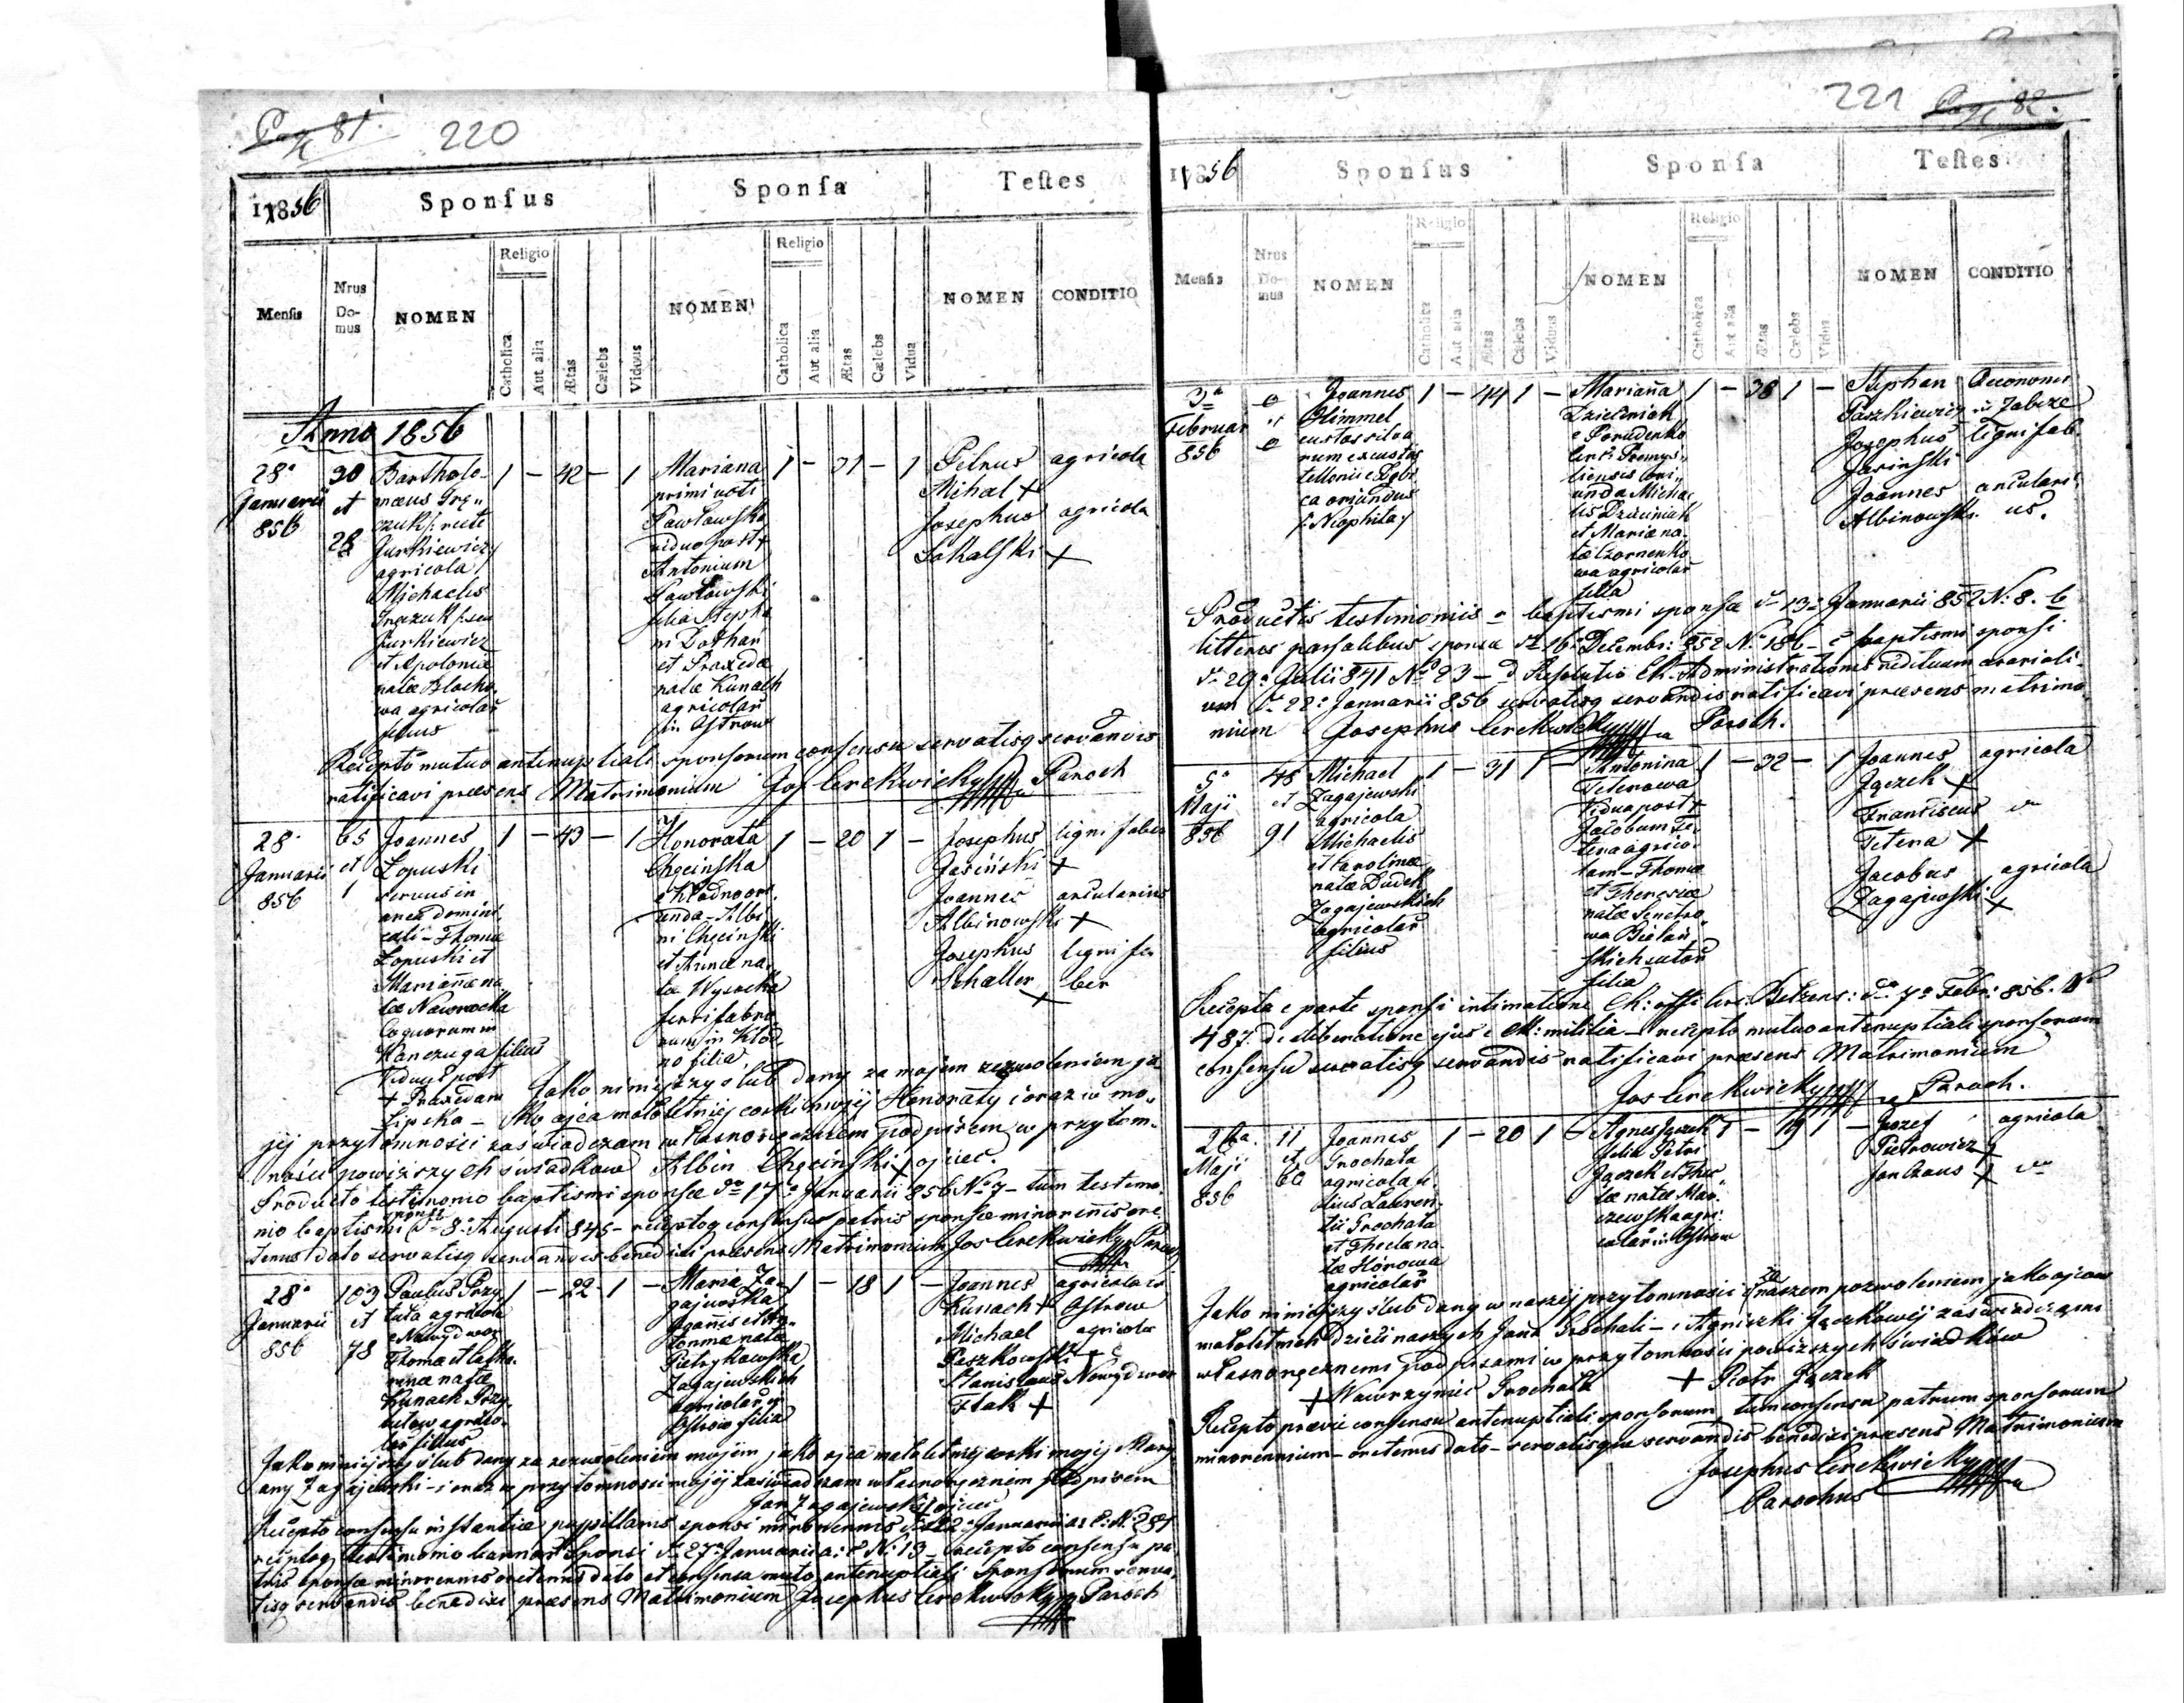 Pag 81.
220
1856
Sponsus
Sponsa
Testes
Mensis
Nrus Domus
NOMEN
Religio
Catholica
Aut alia
Ætas
Cælebs
Viduus
NOMEN
Religio
Catholica
Aut alia
Ætas
Cælebs
Vidua
NOMEN
CONDITIO
Anno 1856
28a Januarii 856
30 et 28
Bartholo-
mæus Grę-
czuk /: recte
Jurkiewicz /
agricola
Michaelis
Greczuk /: seu
Jurkiewicz
et Apolonia
natæ Blacho-
wa agricolar
filius
1 – 42 – 1
Mariana
primi voti
Pawłowska
vidua post +
Antonium
Pawłowski
filia Stepha
ni Dothan
et Praxeda
natæ Kunach
agricolar
in Ostrow
1 – 31 – 1
Pilnus
Mihal +
Josephus
Sakalski +
agricola
agricola
Recepto mutuo antenuptiali sponsorum consensu servatisq servandis
ratificavi præsens Matrimonium Jos Cerekwicky Paroch
28a Januarii 856
65 et 1
Joannes
Lopuski
servus in
area domini
cali – Thomæ
Lopuski et
Mariannæ na
tæ Nawrocka
coquorum in
Kanczuga filius
viduus post
+ Praxedam
Lipska –
1 – 43 – 1
Honorata
Chęcinska
e Kłodno ori
unda – Albi
ni Chęcinski
et Annæ na
tæ Wysocka
ferri fabro
rum in Kłod
no filia
1 – 20 1 –
Josephus
Jasiński +
Joannes
Albinowski +
Josephus
Schaller +
ligni faber
arcularius
ligni fa
ber
Jako niniejszy slub dany za mojem zezwoleniem ja
ko ojca małoletniej corki mojej Honoraty i oraz w mo-
jej przytomności zaswiadczam własnoręcznem podpisem w przytom-
nosci powizszych świadkow Albin Chęcinski + ojciec.
Producto testimonio baptismi sponsæ dto 17a Januarii 856 No 7 – tum testimo
nio baptismi sponsi dto 8a Augusti 845 – receptoq consensus patris sponsæ minorennis ore
tenus dato servatisq servandis benedixi præsens Matrimonium Jos Cerekwicky Paroch
28a Januarii 856
103 et 78
Paulus Przy
tuła agricola
e Nowydwor
Thomæ et Catha
rinæ natæ
Kunach Przy
tułow agrico
lar filius
1 – 22 1 –
Maria Za
gajewska
Joannis et An
tonina natæ
Pietrykowska
Zagajewskich
agricolar in
Ostrow filia
1 – 18 1 –
Joannes
Kunach +
Michael
Paszkowski +
Stanislaus
Ftak +
agricola in
Ostrow
agricola
e
Nowydwor
Jako niniejszy slub dany za zezwoleniem mojim jako ojca małoletniej corki mojej Mary
any Zagajewski – i oraz w przytomnosci mojéj zaswiadczam własnoręcznem podpisem
Jan Zagajewski + ojciec
Recepto consensu instantiæ pupillaris sponsi minorennis dto 22a Januarii a: c: N: 284
receptoq testimonio bannor Sponsi dto 27a Januarii a: c N: 13 – recepto consensu pa
tris sponsæ minorennis oretenus dato et consensu mutuo antenuptiali Sponsorum serva
tisq servandis benedixi præsens Matrimonium Josephus Cerekwicky Paroch
221
Pag 82.
1856
Sponsus
Sponsa
Testes
Mensis
Nrus Domus
NOMEN
Religio
Catholica
Aut alia
Ætas
Cælebs
Viduus
NOMEN
Religio
Catholica
Aut alia
Ætas
Cælebs
Vidua
NOMEN
CONDITIO
3a Februar 856
Joannes
Himmel
custos silva
rum ex
ca oriundus
/: Neophita /
1 – 44 1 –
Marianna
Dzieciniak
e Porudenko
Circ: Premys-
liensis ori-
unda Micha
lis Dzieciniak
et Mariæ na-
tæ Czornenko
wa agricolar
filia
1 – 38 1 –
Stephan
Paszkiewicz
Josephus
Jasinski
Joannes
Albinowski
Œconomus
in Jabcze
ligni fab.
arculari
us.
Productis testimoniis a baptismi sponsæ dto 13a Januarii 852 N: 8. b
litteris passalibus sponsæ dto 16a Decembr: 852 No 186 – c baptismi sponsi
dto 29a Julii 841 No 23 – d Resolutio CK. Administrationis redituum ærariali-
um dto 22a Januarii 856 servatisq servandis ratificavi præsens matrimo
nium Josephus Cerekwicky Paroch.
5a Maji 856
48 et 91
Michael
Zagajewski
agricola
Michaelis
et Carolinæ
natæ Dudek
Zagajewskich
agricolar
filius
1 – 31 1 –
Antonina
Tetenowa
Vidua post +
Jacobum Te-
tera agrico-
lam – Thomæ
et Theresiæ
natæ Senetro
wa Bielań
skich sutor
filia
1 – 32 – 1
Joannes
Jączek +
Franciscus
Tetera +
Jacobus
Zagajewski +
agricola
dto
agricola
Recepta e parte sponsi intimatione CK: offi circ: Bełzens: dto 7a Febr: 856 No
487. de liberatione ejus e CK: militia – recepto mutuo antenuptiali sponsorum
consensu servatisq servandis ratificavi præsens Matrimonium
Jos Cerekwicky Paroch.
26a. Maji 856
11 et 60
Joannes
Grochala
agricola fi-
lius Lauren-
tii Grochala
et Theclæ na-
tæ Horowa
agricolar
1 – 20 1 –
Agnes Jączek
filia Petri
Jączek et Thec
læ natæ Mar-
czewska agri-
colar in Ostrow
1 – 19 1 –
Jozef
Pietrowicz +
Jan Kaus +
agricola
dto
Jako niniejszy slub dany w naszej przytomnosci i za naszem pozwoleniem jako ojcow
małoletnich dzieci naszych Jana Grochali – i Agniszki Jączkowéj zaświadczamy
własnoręcznemi podpisami w przytomności powiższych świadków
+ Wawrzyniec Grochala + Piotr Jączek
Recepto prævie consensu antenuptiali sponsorum tum consensu patrum sponsorum
minorennium – oretenus dato – servatisque servandis benedixi præsens Matrimonium
Josephus Cerekwicky
Parochus